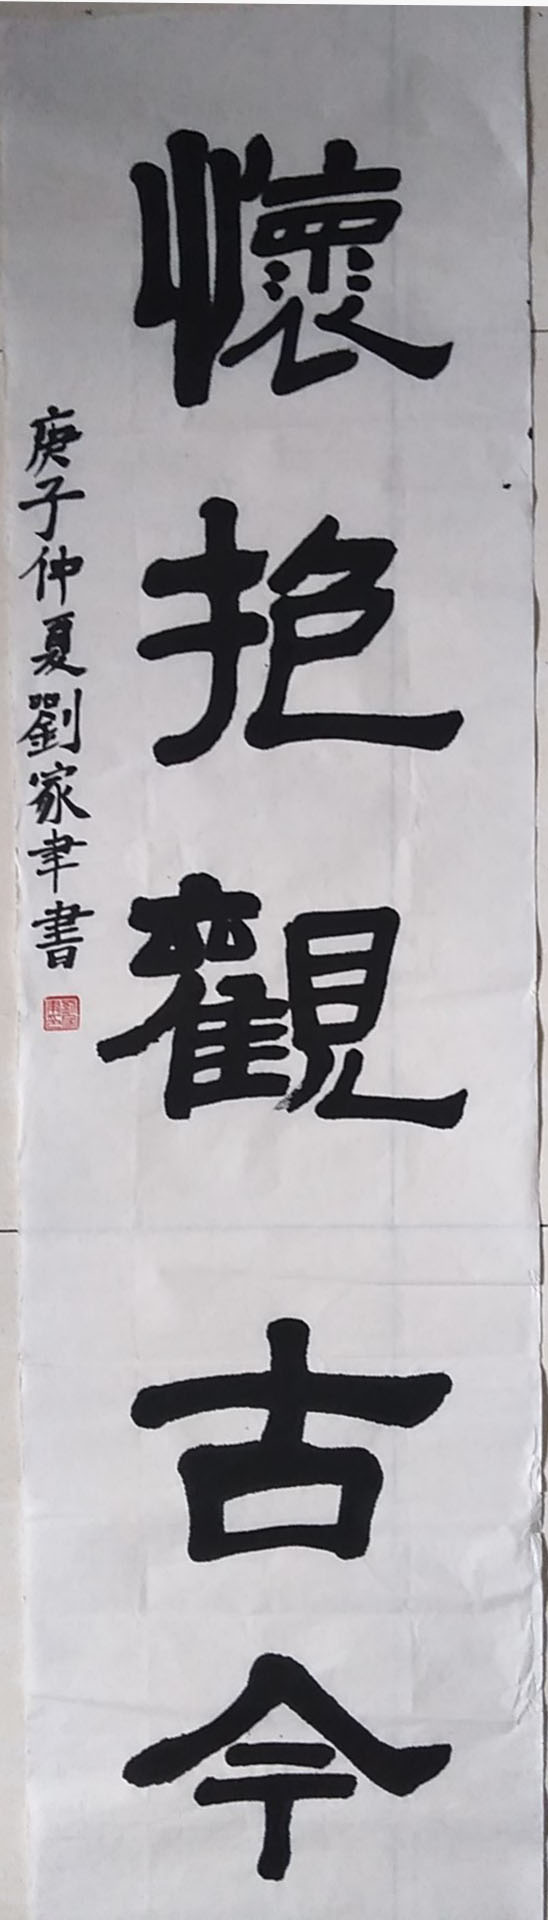 懷抱觀古今
庚子仲夏劉家聿書